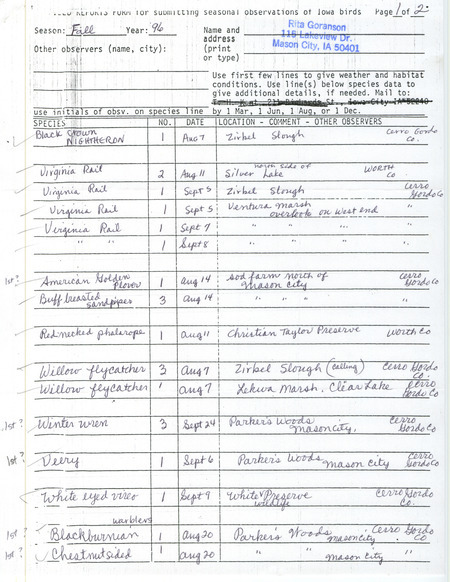 FIELD REPORTS FORM for submitting seasonal observations of Iowa birds Page 1 of 2
Season: Fall Year: 96
Name and address (print or type)
Rita Goranson
116 Lakeview Dr.
Mason City, IA 50401
Other observers (name, city):
Use first few lines to give weather and habitat
conditions. Use line(s) below species data to
give additional details, if needed. Mail to:
by 1 Mar, 1 Jun, 1 Aug, or 1 Dec.
use initials of obsv. on species line
SPECIES NO. DATE LOCATION - COMMENT - OTHER OBSERVERS
Black crown NIGHTHERON 1 Aug 7 Zirbel Slough Cerro Gordo Co.
Virginia Rail 2 Aug 11 north side of Silver Lake WORTH Co
Virginia Rail 1 Sept 5 Zirbel Slough Cerro Gordo Co
Virginia Rail 1 Sept 5 Ventura Marsh overlook on west end "
Virginia Rail 1 Sept 7 " " " "
" " 1 Sept 8 " " "
1st? American Golden Plover 1 Aug 14 sod farm north of Mason City Cerro Gordo Co
Buff breasted sandpipers 3 Aug 14 " " " " "
Red necked phalarope 1 Aug 11 Christian Taylor Preserve Worth Co
Willow flycatcher 3 Aug 7 Zirbel Slough (calling) Cerro Gordo Co.
Willow flycatcher 1 Aug 7 Lekwa Marsh. Clear Lake Cerro Gordo Co
1st? Winter wren 3 Sept 24 Parker's Woods Mason City, Cerro Gordo Co
1st? Veery 1 Sept 6 Parker's Woods Mason City Cerro Gordo Co
White eyed vireo 1 Sept 9 White Preserve wildlife Cerro Gordo Co.
warblers
1st? Blackburnian 1 Aug 20 Parker's Woods Mason City Cerro Gordo Co.
1st? Chestnut sided 1 Aug 20 " " Mason City "